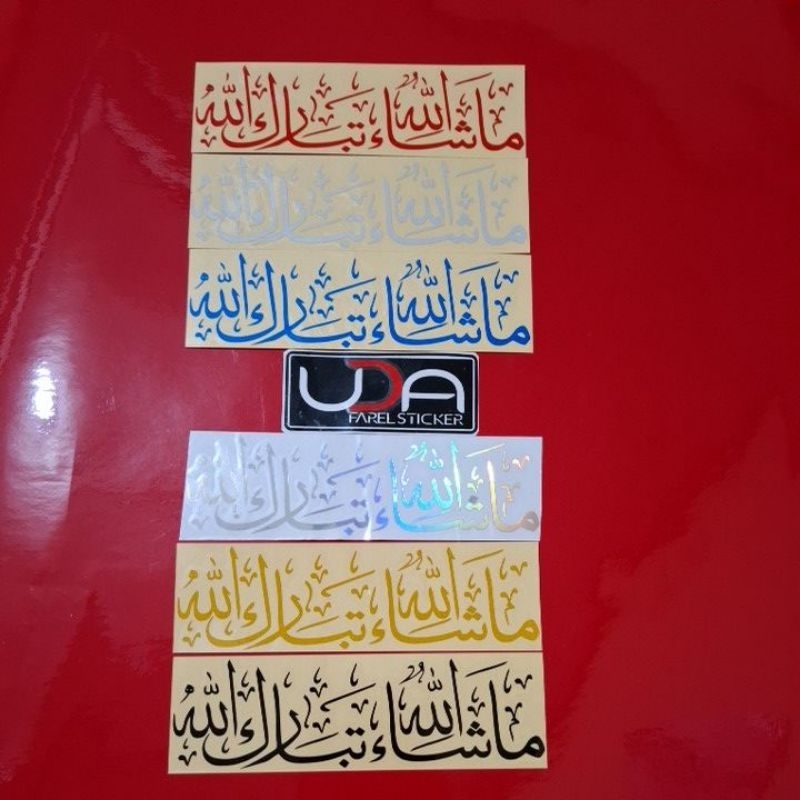 ما شاء الله تبارك الله
ما شاء الله تبارك الله
ما شاء الله تبارك الله
UDA
FAREL STICKER
ما شاء الله تبارك الله
ما شاء الله تبارك الله
ما شاء الله تبارك الله